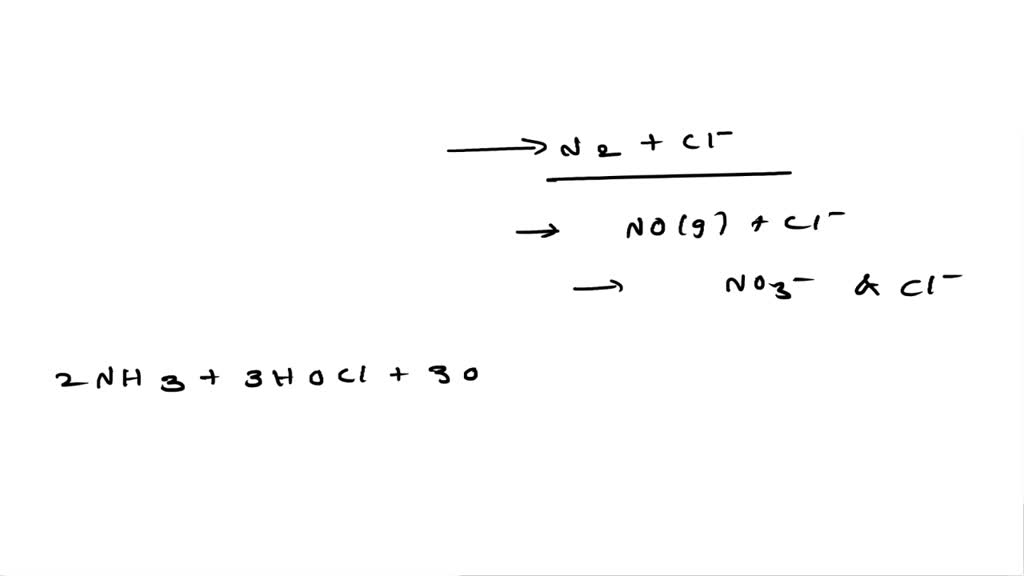 → N2 + Cl⁻
→ NO(g) + Cl⁻
→ NO3⁻ & Cl⁻
2NH3 + 3HOCl + 3O